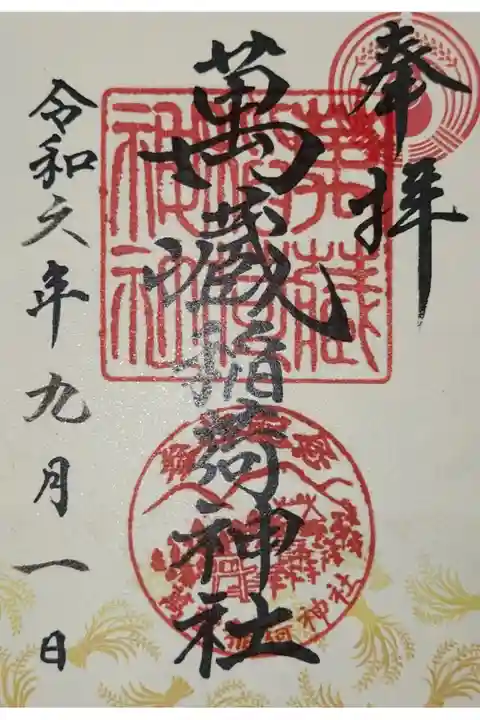 奉拝
萬蔵稲荷神社
令和六年九月一日
萬蔵
稲荷
神社
神社